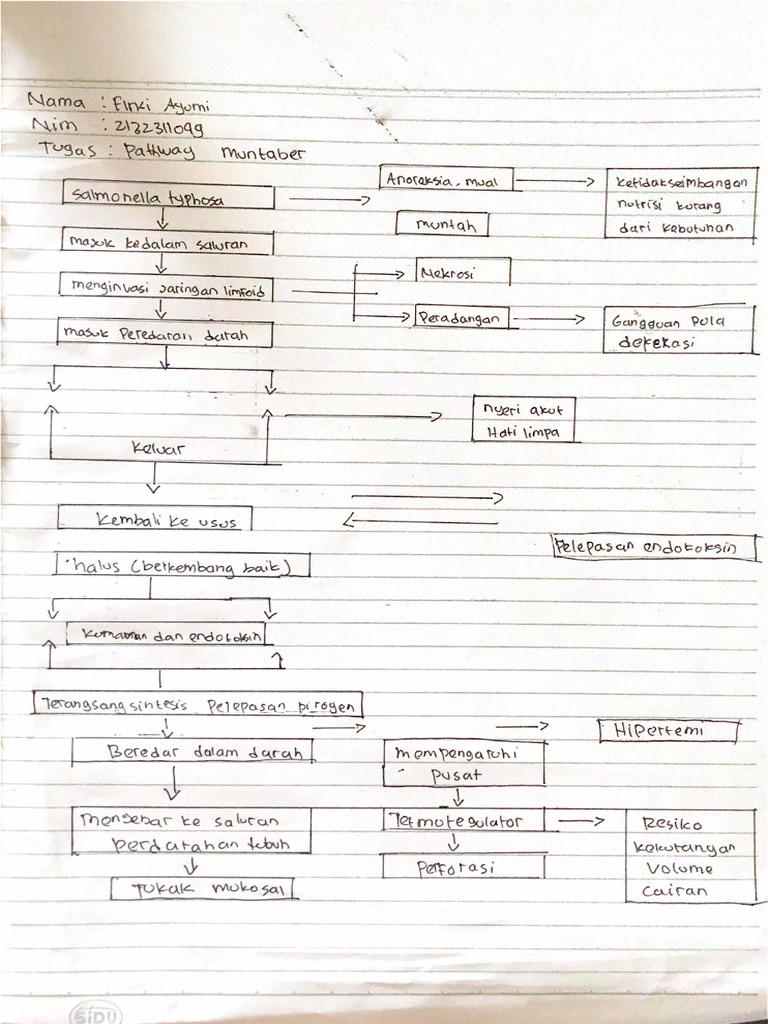 Nama : Finki Ayumi
Nim : 2132311099
Tugas : Pathway muntaber
Salmonella typhosa
Anoreksia, mual
ketidakseimbangan
nutrisi kurang
dari kebutuhan
muntah
masuk kedalam saluran
menginvasi jaringan limfoid
Nekrosi
Peradangan
Gangguan pola
defekasi
masuk Peredaran darah
nyeri akut
Hati limpa
keluar
Kembali ke usus
Pelepasan endotoksin
halus (berkembang baik)
Kumaman dan endotoksin
Terangsang sintesis Pelepasan pirogen
Hipertemi
Beredar dalam darah
mempengaruhi
pusat
mengebar ke saluran
perdarahan tubuh
Termoregulator
Resiko
kekurangan
volume
cairan
Perforasi
Tukak mukosal
SiDU